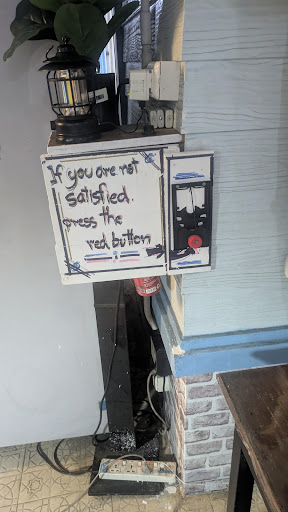 If you are not
satisfied.
press the
red button